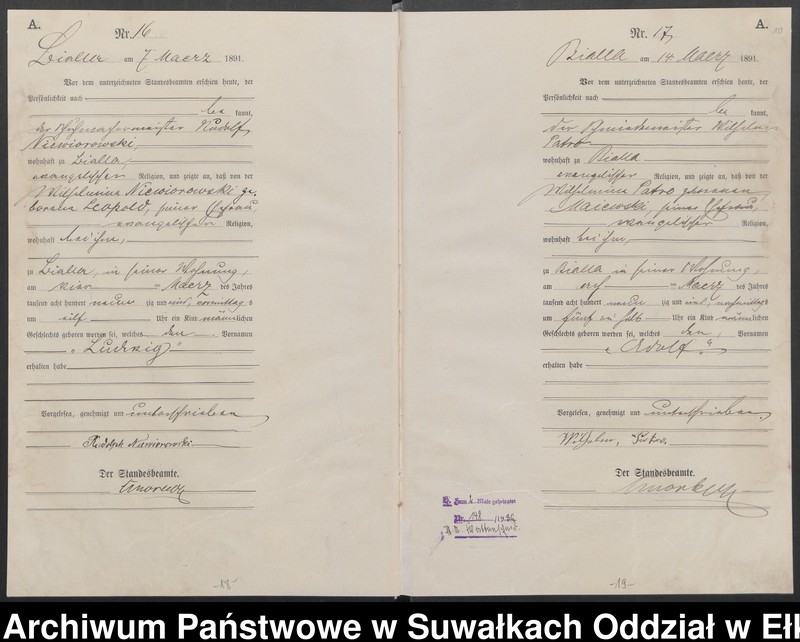 A.
Nr. 16
Bialla am 7 Maerz 1891.
Vor dem unterzeichneten Standesbeamten erschien heute, der
Persönlichkeit nach
be kannt,
der Rudolf
Niewiorowski,
wohnhaft zu Bialla,
evangelischer Religion, und zeigte an, daß von der
Wilhelmine Niewiorowski ge-
borene Leopold, seiner Ehefrau,
evangelischen Religion,
wohnhaft bei ihm,
zu Bialla, in seiner Wohnung,
am vier Maerz des Jahres
tausend acht hundert neun zig und eins, vormittags
um elf Uhr ein Kind männlichen
Geschlechts geboren worden sei, welches den Vornamen
"Ludwig"
erhalten habe
Vorgelesen, genehmigt und unterschrieben
Rudolph
Der Standesbeamte.
-18-
A.
Nr. 17,
Bialla am 14 Maerz 1891.
Vor dem unterzeichneten Standesbeamten erschien heute, der
Persönlichkeit nach
be kannt,
der Schmiedemeister Wilhelm
Patro
wohnhaft zu Bialla
evangelischer Religion, und zeigte an, daß von der
Wilhelmine Patro geborenen
Majewski, seiner Ehefrau,
evangelischer Religion,
wohnhaft bei ihm,
zu Bialla in seiner Wohnung,
am elf Maerz des Jahres
tausend acht hundert neun zig und eins, nachmittags
um fünf ein halb Uhr ein Kind männlichen
Geschlechts geboren worden sei, welches den, Vornamen
"Adolf"
erhalten habe
Vorgelesen, genehmigt und unterschrieben
Wilhelm
Der Standesbeamte.
Zum 2 Male geheiratet
Nr. 148 /1936
-19-
Archiwum Państwowe w Suwałkach Oddział w Eł